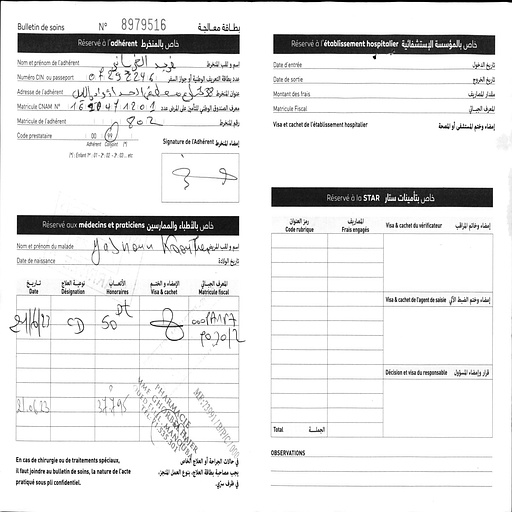 Bulletin de soins N° 8979516 بطاقة معالجة
Réservé à l'adhérent خاص بالمنخرط
Nom et prénom de l'adhérent فريد الغرياني إسم و لقب المنخرط
Numéro CIN ou passeport 07292246 عدد بطاقة التعريف الوطنية أو جواز السفر
Adresse de l'adhérent عنوان المنخرط
Matricule CNAM N° معرف الصندوق الوطني للتأمين على المرض عدد
Matricule de l'adhérent 802 رقم المنخرط
Code prestataire 00 99 Signature de l'Adhérent إمضاء المنخرط
Adhérent Conjoint (*)
(*) : Enfant 1er, 01 - 2e, 02 - 3e, 03 ... etc
Réservé aux médecins et praticiens خاص بالأطباء والممارسين
Nom et prénom du malade إسم و لقب المريض
Date de naissance تاريخ الولادة
تاريخ نوعية العلاج الأتعاب الإمضاء و الختم المعرف الجبائي
Date Désignation Honoraires Visa & cachet Matricule fiscal
CD 50 Dt
21.06.23 37,795
PHARMACIE
En cas de chirurgie ou de traitements spéciaux,
il faut joindre au bulletin de soins, la nature de l'acte
pratiqué sous pli confidentiel.
في حالات الجراحة أو العلاج الخاص
يجب مصاحبة بطاقة العلاج، بنوع العمل المنجز،
في ظرف سري.
Réservé à l'établissement hospitalier خاص بالمؤسسة الإستشفائية
Date d'entrée تاريخ الدخول
Date de sortie تاريخ الخروج
Montant des frais مقدار المصاريف
Matricule Fiscal المعرف الجبائي
Visa et cachet de l'établissement hospitalier إمضاء وختم المستشفى أو المصحة
Réservé à la STAR خاص بتأمينات ستار
رمز العنوان المصاريف
Code rubrique Frais engagés
Visa & cachet du vérificateur إمضاء وخاتم المراقب
Visa & cachet de l'agent de saisie إمضاء وختم الضبط الآلي
Décision et visa du responsable قرار وإمضاء المسؤول
Total الجملة
OBSERVATIONS